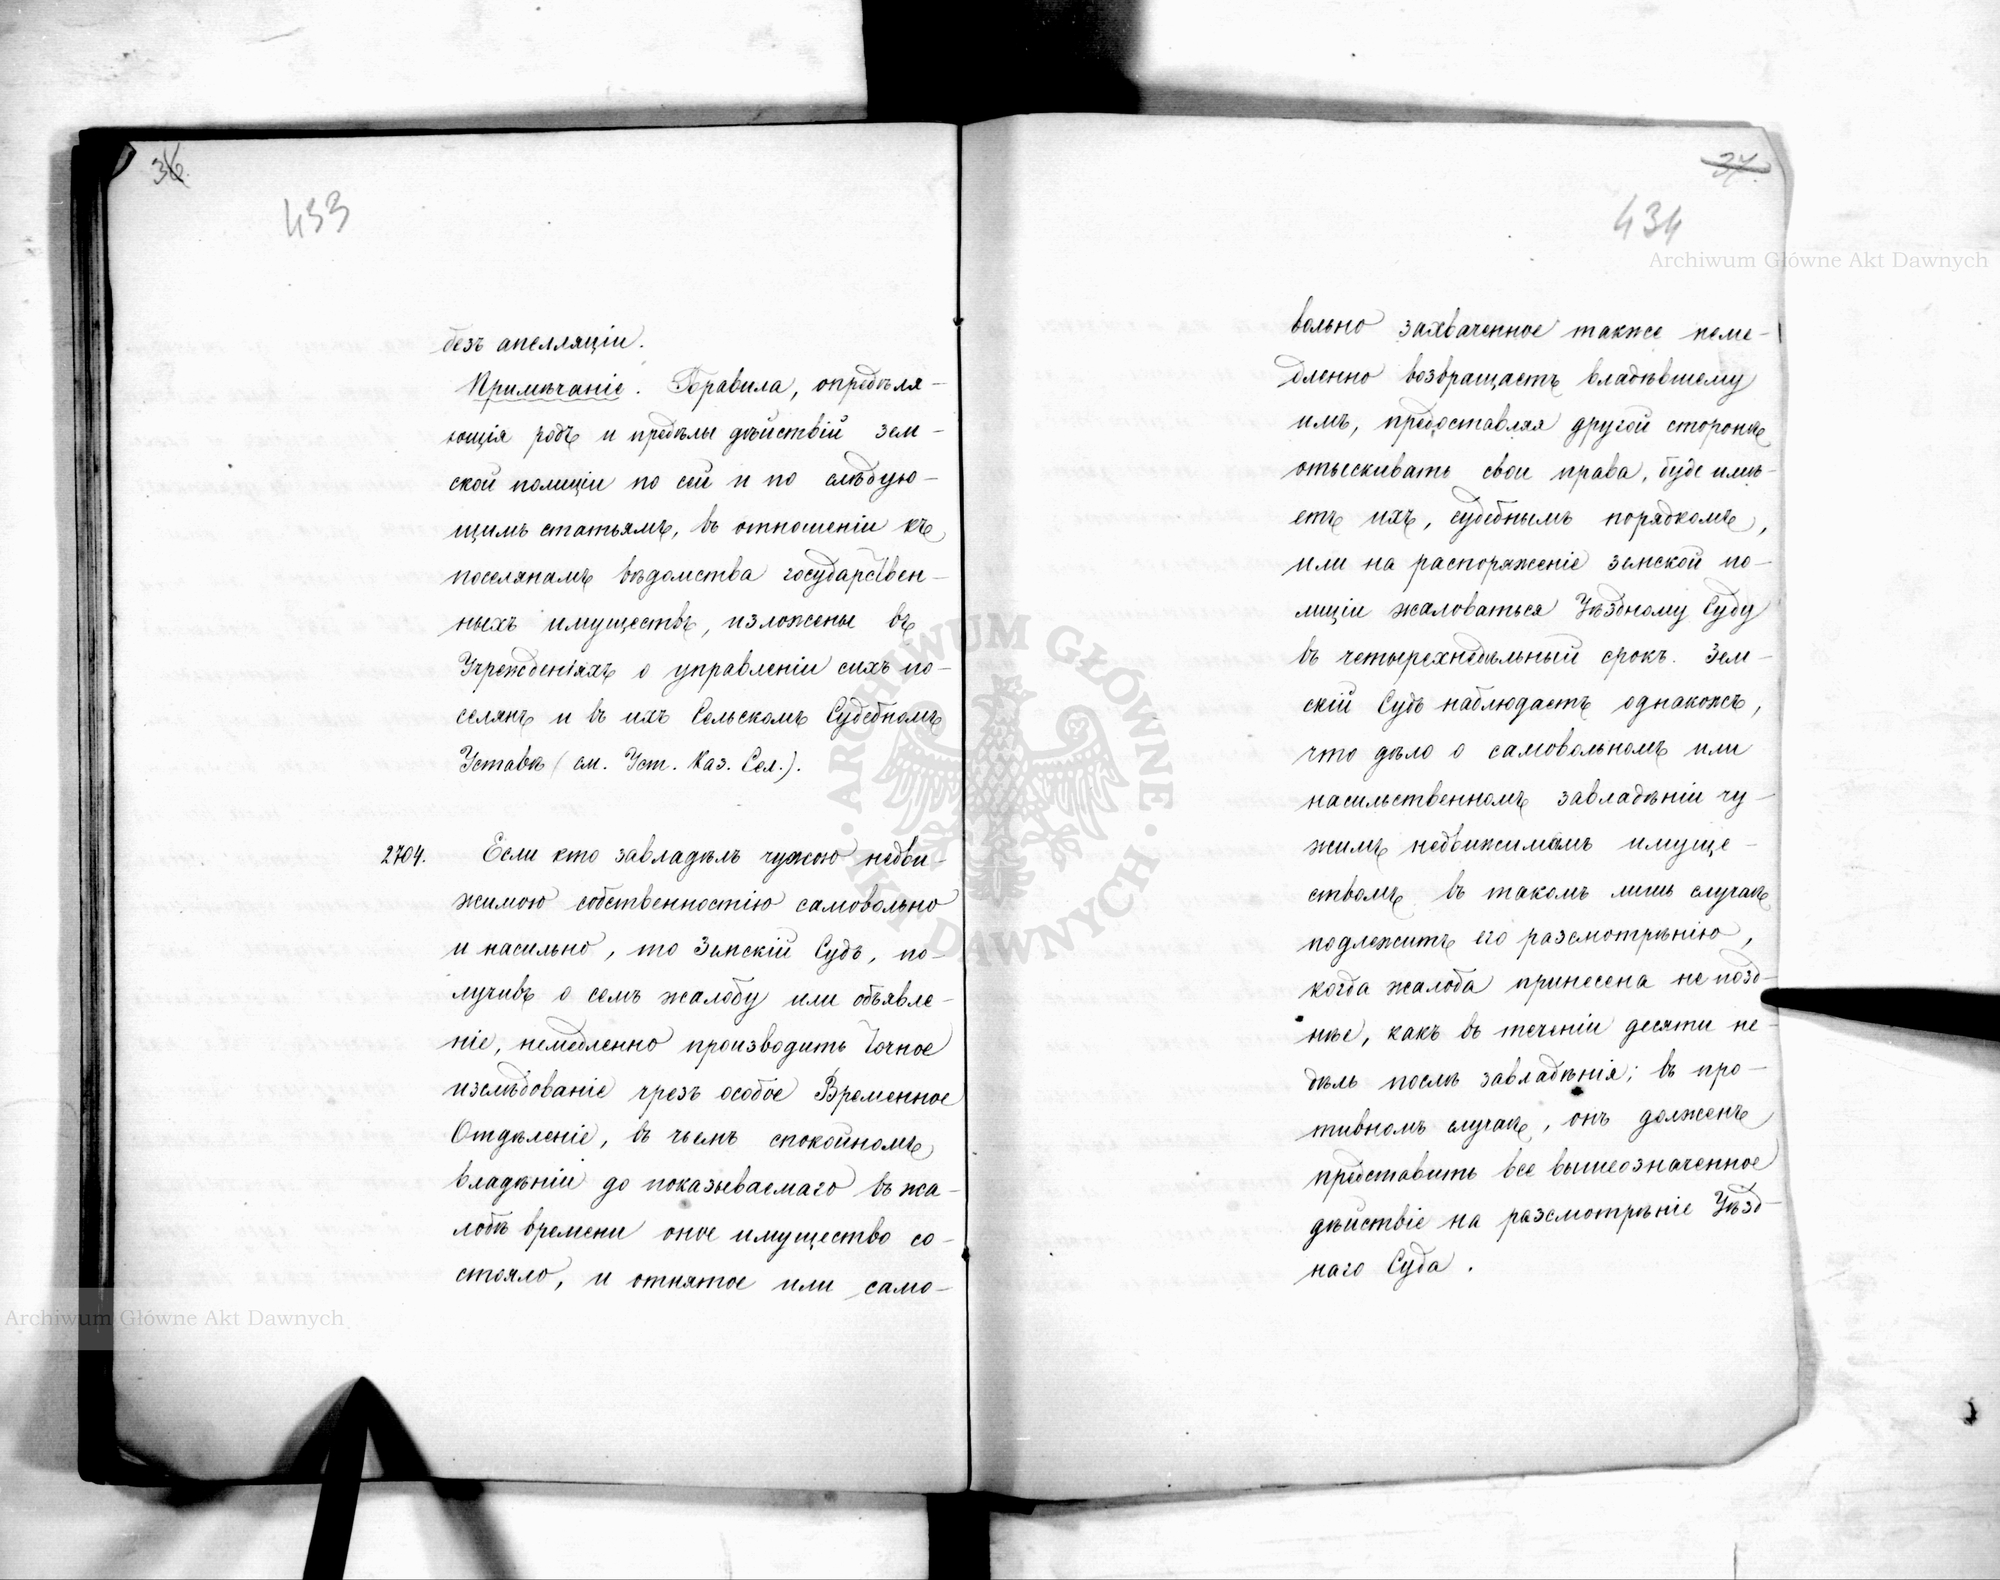 36.
433
безъ апелляціи.
Примѣчаніе. Правила, опредѣля-
ющія родъ и предѣлы дѣйствій зем-
ской полиціи по сей и по слѣдую-
щимъ статьямъ, въ отношеніи къ
поселянамъ вѣдомства государствен-
ныхъ имуществъ, изложены въ
Учрежденіяхъ о управленіи сихъ по-
селянъ и въ ихъ Сельскомъ Судебномъ
Уставѣ (см. Уст. Каз. Сел.).
2704. Если кто завладѣлъ чужою недви-
жимою собственностію самовольно
и насильно, то Земскій Судъ, по-
лучивъ о семъ жалобу или объявле-
ніе, немедленно производитъ точное
изслѣдованіе чрезъ особое Временное
Отдѣленіе, въ чьемъ спокойномъ
владѣніи до показываемаго въ жа-
лобѣ времени оное имущество со-
стояло, и отнятое или само-
37.
434
вольно захваченное также неме-
дленно возвращаетъ владѣвшему
имъ, предоставляя другой сторонѣ
отыскивать свои права, буде имѣ-
етъ ихъ, судебнымъ порядкомъ,
или на распоряженіе земской по-
лиціи жаловаться Уѣздному Суду
въ четырехнедѣльный срокъ. Зем-
скій Судъ наблюдаетъ однакожъ,
что дѣло о самовольномъ или
насильственномъ завладѣніи чу-
жимъ недвижимымъ имуще-
ствомъ въ такомъ лишь случаѣ
подлежитъ его разсмотрѣнію,
когда жалоба принесена не позд-
нѣе, какъ въ теченіи десяти не-
дѣль послѣ завладѣнія; въ про-
тивномъ случаѣ, онъ долженъ
представить все вышеозначенное
дѣйствіе на разсмотрѣніе Уѣзд-
наго Суда.
Archiwum Główne Akt Dawnych
Archiwum Główne Akt Dawnych
ARCHIWUM GŁÓWNE AKT DAWNYCH